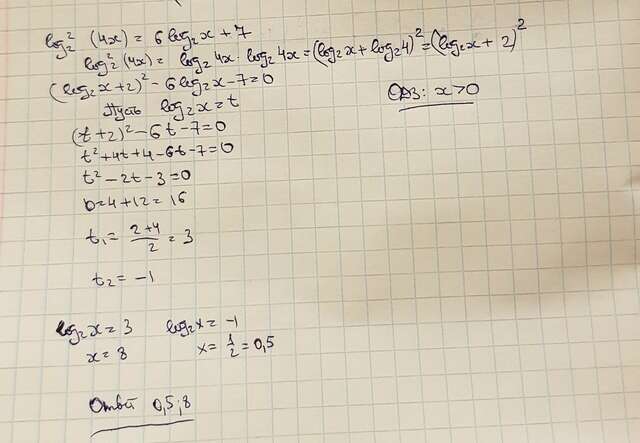 log₂² (4x) = 6 log₂x + 7
log₂² (4x) = log₂ 4x · log₂ 4x = (log₂x + log₂4)² = (log₂x + 2)²
(log₂x + 2)² - 6 log₂x - 7 = 0
ОДЗ: x > 0
Пусть log₂x = t
(t + 2)² - 6t - 7 = 0
t² + 4t + 4 - 6t - 7 = 0
t² - 2t - 3 = 0
D = 4 + 12 = 16
t₁ = (2+4)/2 = 3
t₂ = -1
log₂x = 3 log₂x = -1
x = 8 x = 1/2 = 0,5
Ответ 0,5; 8